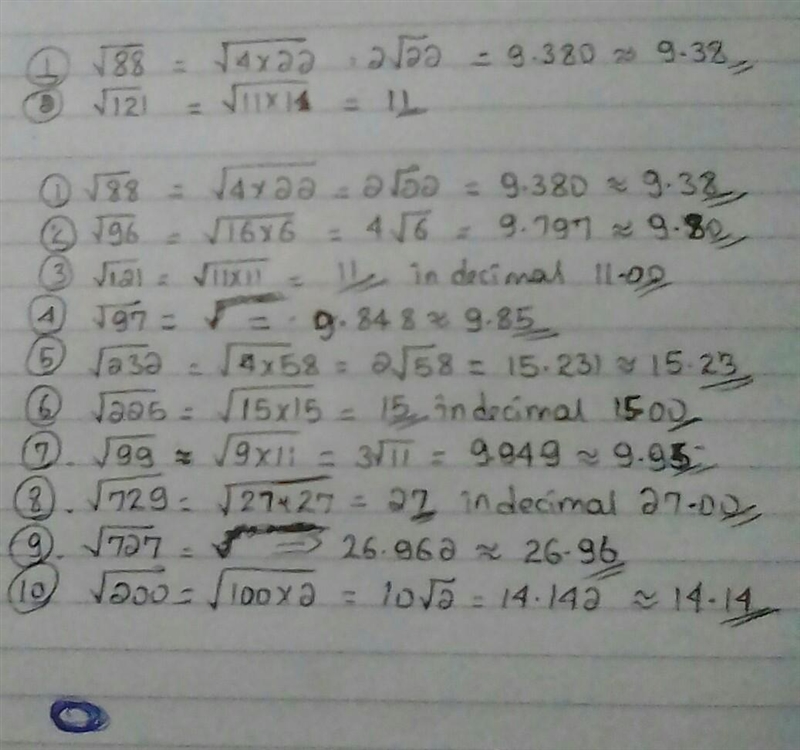 ① √88 = √4×22 · 2√22 = 9.380 ≈ 9.38
② √121 = √11×11 = 11
① √88 = √4×22 = 2√22 = 9.380 ≈ 9.38
② √96 = √16×6 = 4√6 = 9.797 ≈ 9.80
③ √121 = √11×11 = 11 in decimal 11.00
④ √97 = √ = 9.848 ≈ 9.85
⑤ √232 = √4×58 = 2√58 = 15.231 ≈ 15.23
⑥ √225 = √15×15 = 15 in decimal 15.00
⑦. √99 ≈ √9×11 = 3√11 = 9.949 ≈ 9.95
⑧. √729 = √27×27 = 27 in decimal 27.00
⑨. √727 = √ => 26.962 ≈ 26.96
⑩ √200 = √100×2 = 10√2 = 14.142 ≈ 14.14